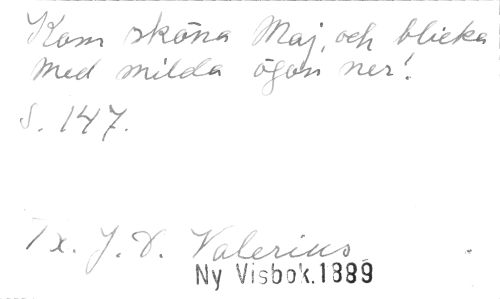 Kom sköna Maj, och blicka
med milda ögon ner!
S. 147.
Tx. J. D. Valerius.
Ny Visbok.1889